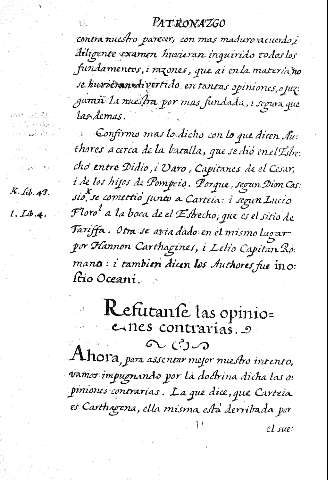 PATRONAZGO
contra nuestro parecer, con mas maduro acuerdo, i
diligente examen huvieran inquirido todos los
fundamentos, i razones, que ai en la materia, no
se huvieran divertido en tantas opiniones, o juz
garan la nuestra por mas fundada, i segura que
las demas.
Confirmo mas lo dicho con lo que dicen Au-
thores acerca de la batalla, que se dió en el Estre-
cho entre Didio, i Varo, Capitanes de el Cesar,
i de los hijos de Pompeio. Porque, segun Dion Cas-
K. lib. 43.
sio, K se comettió junto a Carteia: i segun Lucio
l. Lib. 4.
Floro l a la boca de el Estrecho; que es el sitio de
Tariffa. Otra se avia dado en el mismo lugar
por Hannon Carthagines, i Lelio Capitan Ro-
mano: i tambien dicen los Authores fue in o-
stio Oceani.
Refutanse las opinio=
nes contrarias.
Ahora, para assentar mejor nuestro intento,
vamos impugnando por la doctrina dicha las o-
piniones contrarias. La que dice, que Carteia
es Carthagena, ella misma está derribada por
el sue-